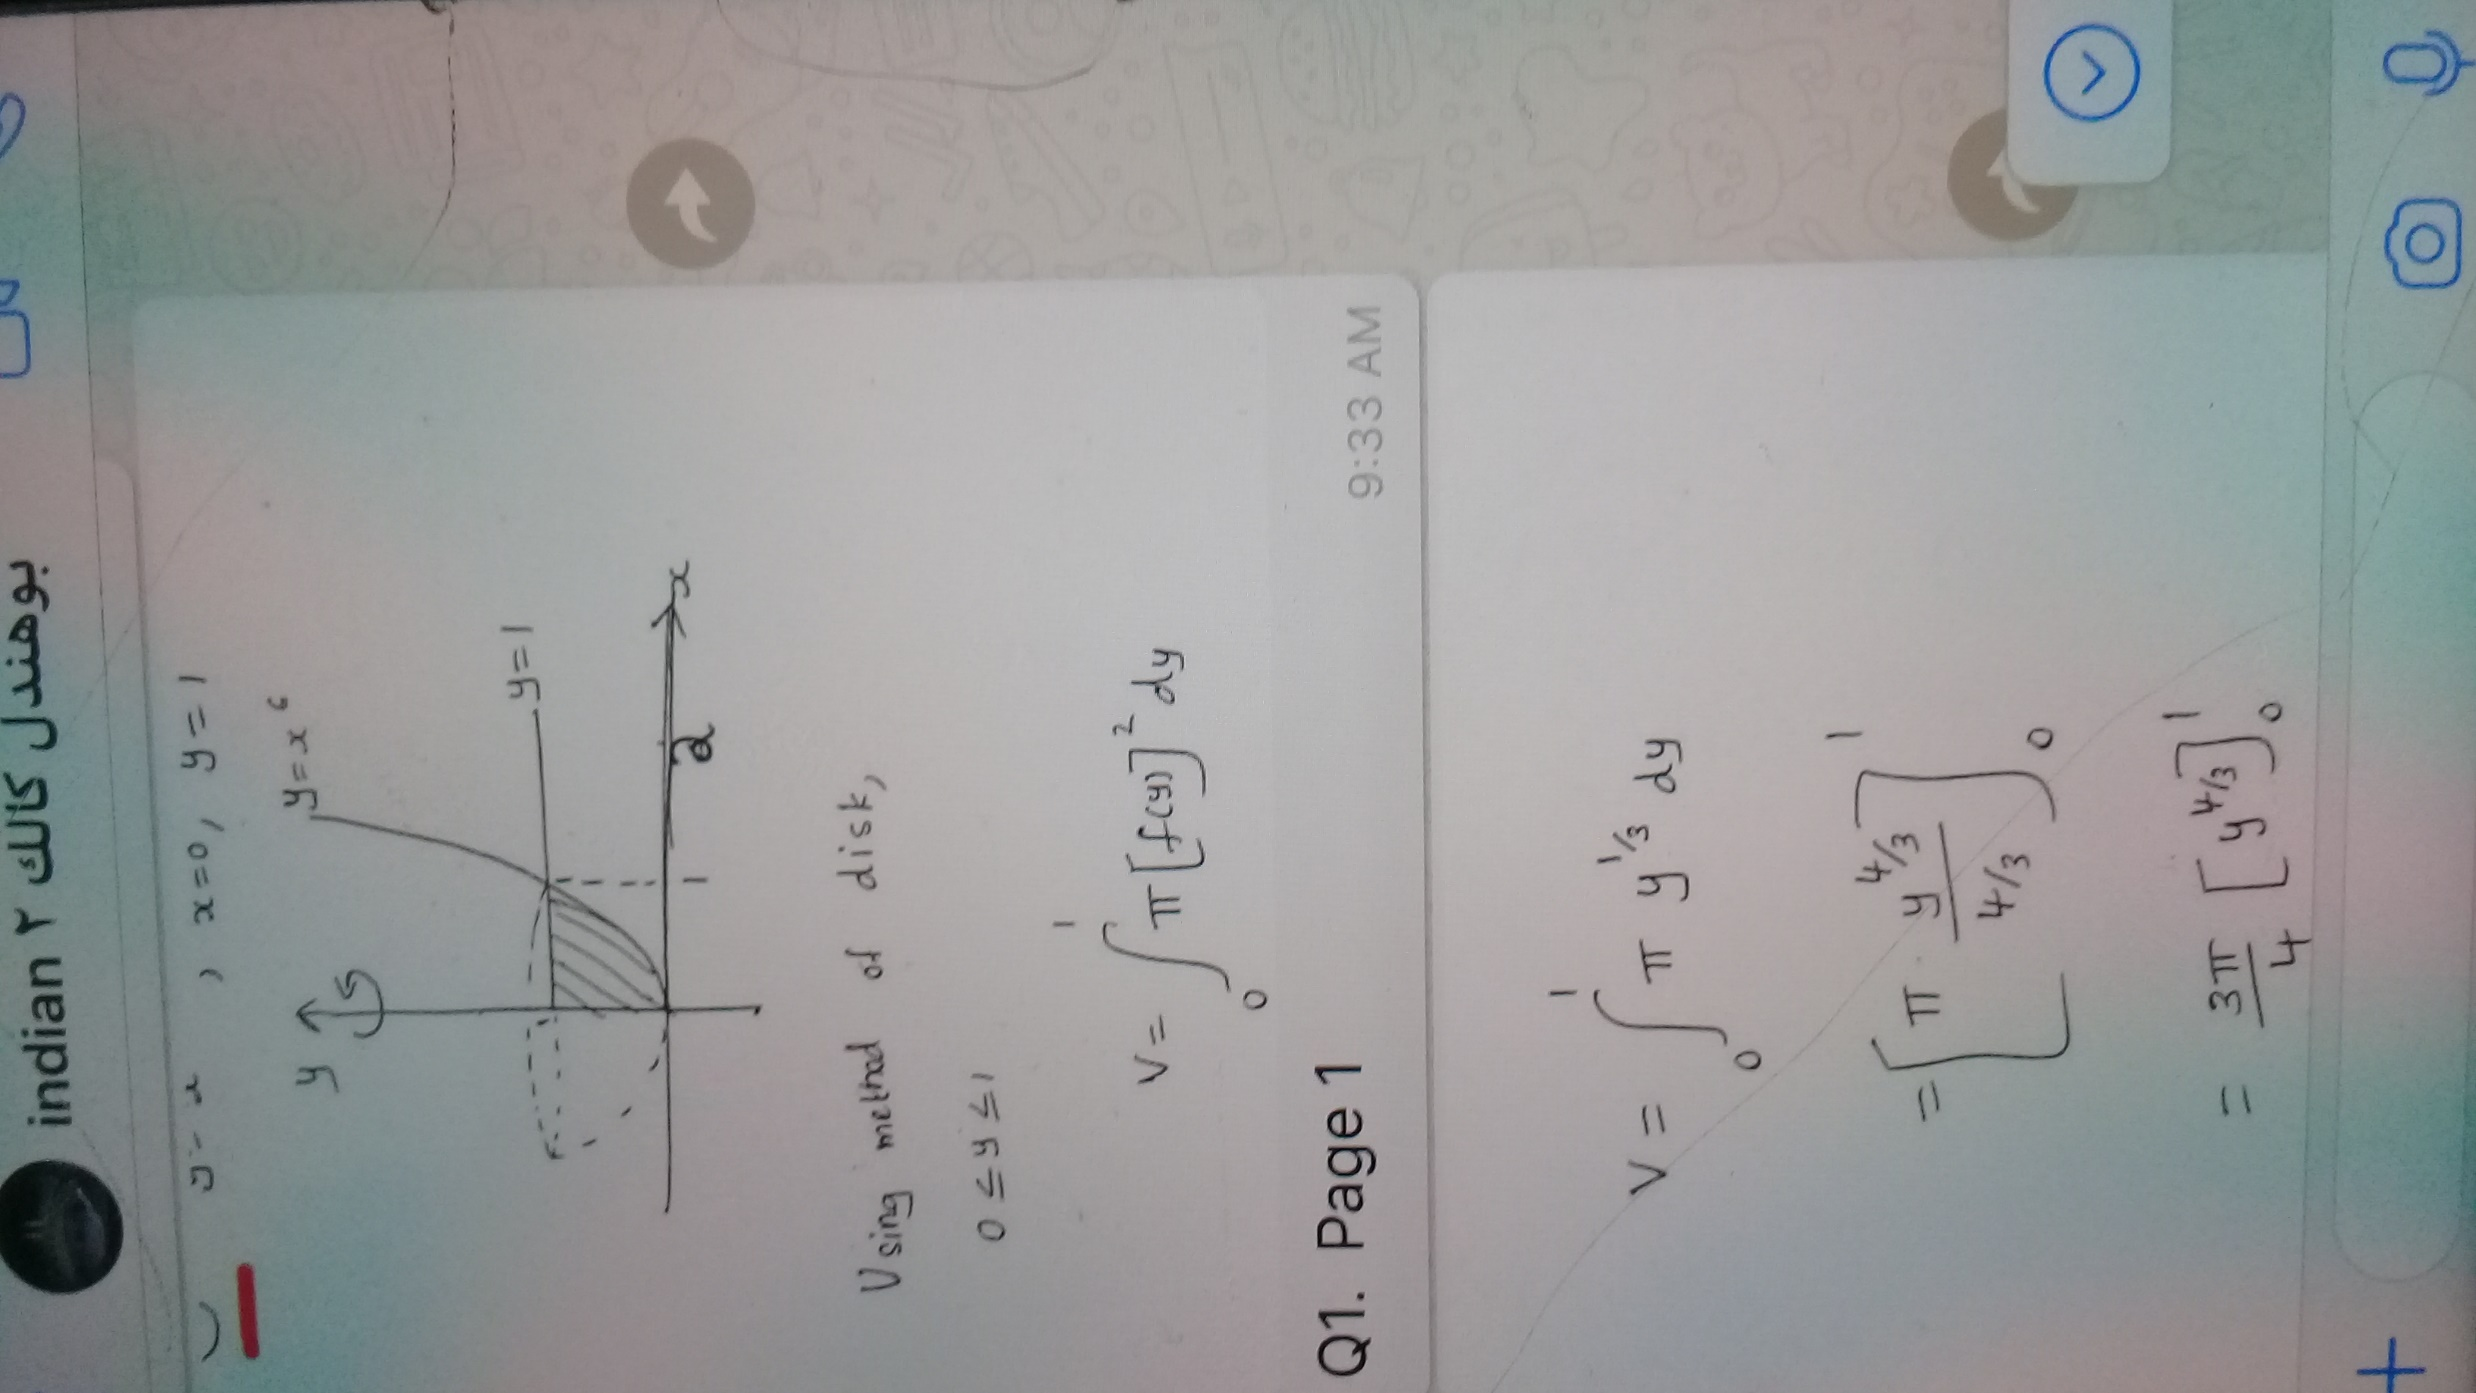 بوهندل كالك ٢ indian
y= x , x=0, y=1
y
y=x⁶
y=1
1
2
x
Using method of disk,
0≤y≤1
V= ∫₀¹ π[f(y)]² dy
Q1. Page 1
9:33 AM
V= ∫₀¹ π y^1/3 dy
= [π · y^4/3 / 4/3]₀¹
= 3π/4 [y^4/3]₀¹